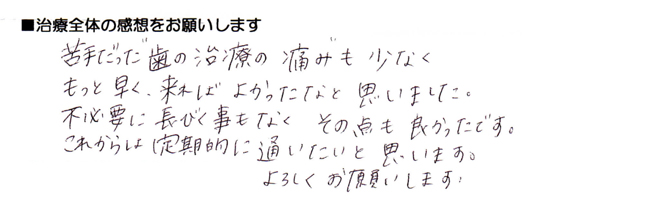 ■治療全体の感想をお願いします
苦手だった歯の治療の痛みも少なく
もっと早く、来ればよかったなと思いました。
不必要に長びく事もなく その点も良かったです。
これからは定期的に通いたいと思います。
よろしくお願いします